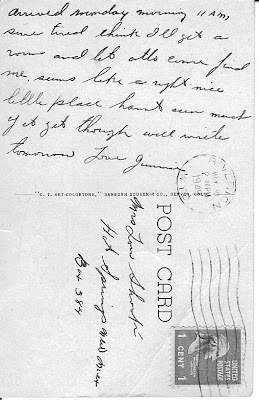 arrived monday morning 11 AM
sure tired think I'll get a
room and let otto come find
me, seems like a right nice
little place hant seen much
of it yet though will write
tomorrow Love Jimmie
"C. T. ART-COLORTONE," SANBORN SOUVENIR CO., DENVER, COLO.
POST CARD
Mrs Lou Short
Hot Springs New Mex
Box 384
2 PM
UNITED
STATES
POSTAGE
1 CENT 1